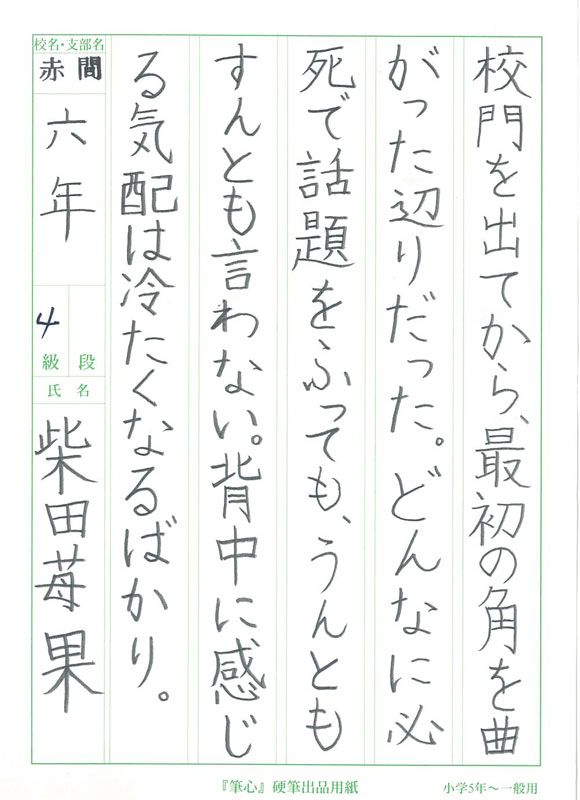 校門を出てから、最初の角を曲
がった辺りだった。どんなに必
死で話題をふっても、うんとも
すんとも言わない。背中に感じ
る気配は冷たくなるばかり。
校名・支部名
赤間
六年
4
級 段
氏名
柴田苺果
『筆心』硬筆出品用紙
小学5年〜一般用